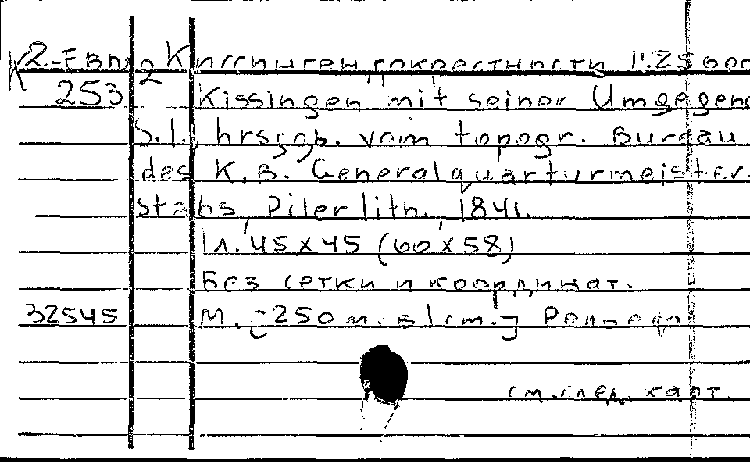 К2-Евр 2 Киссинген, окрестности 1:25 000
253 Kissingen mit seiner Umgegend
S.l., hrsggb. vom topogr. Bureau
des K. B. Generalquartiermeister-
stabs, Piler lith., 1841.
1 л. 45 x 45 (60 x 58)
Без сетки и координат.
32545 М. [250 м. в 1 см.] Рельеф
см. след. карт.